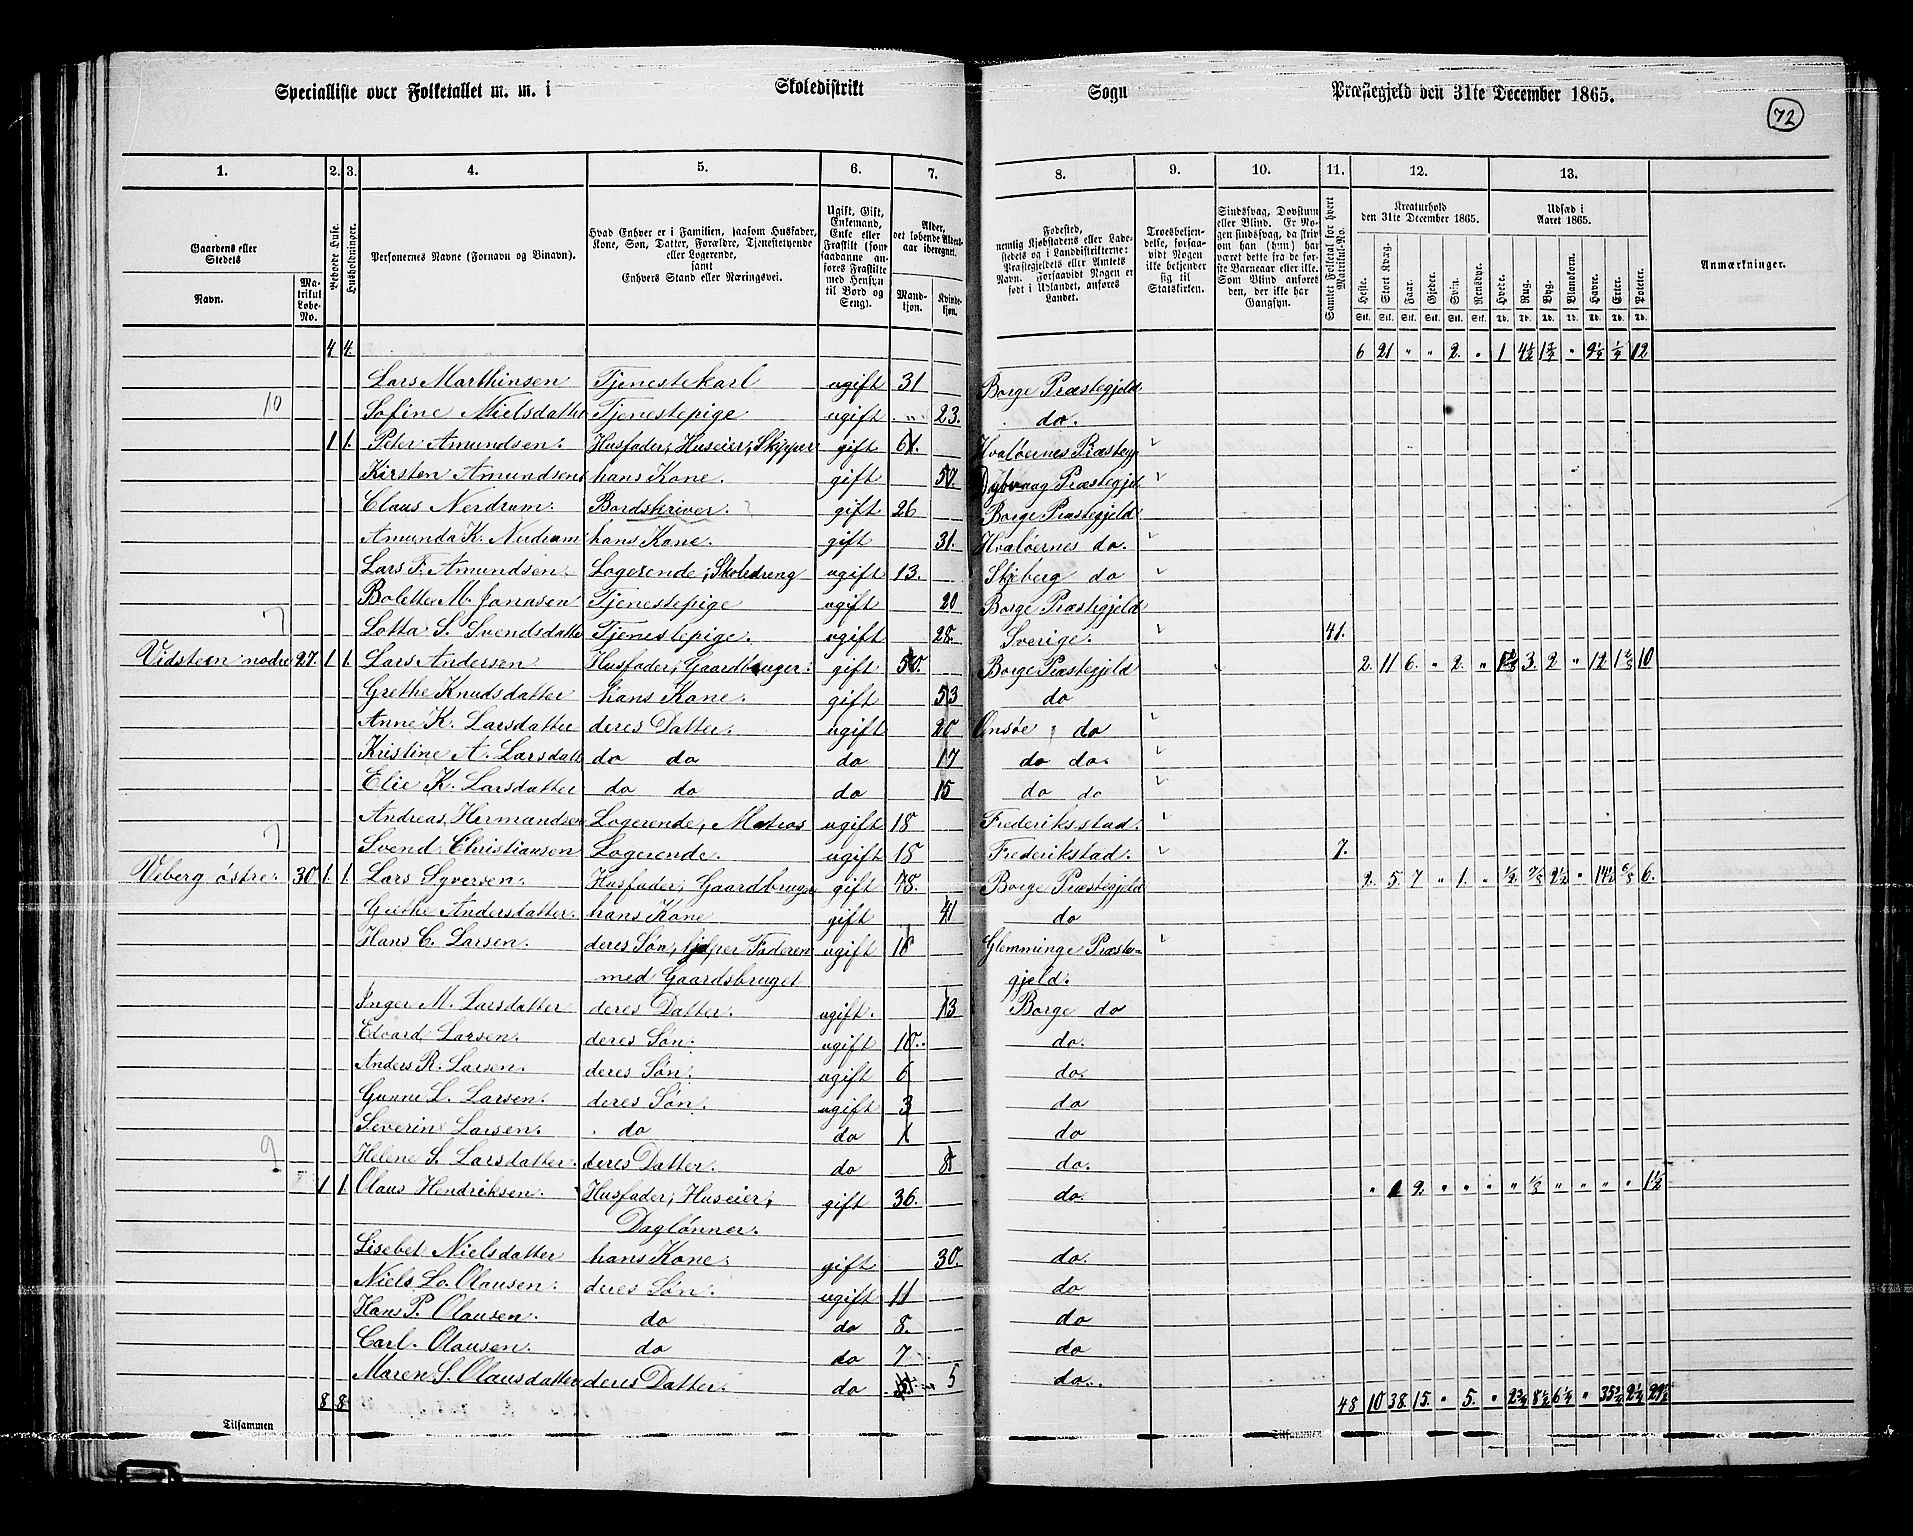 Specialliste over Folketallet m. m. i Skoledistrikt Sogn Præstegjeld den 31te December 1865.
72
1. 2. 3. 4. 5. 6. 7. 8. 9. 10. 11. 12. 13.
Gaardens eller Stedets
Navn.
Matrikul Løbe-No.
Beboede Huse.
Husholdninger.
Personernes Navne (Fornavn og Binavn).
Hvad Enhver er i Familien, saasom Husfader, Kone, Søn, Datter, Forældre, Tjenestetyende eller Logerende, samt Enhvers Stand eller Næringsvei.
Ugift, Gift, Enkemand, Enke eller Fraskilt (som saadanne anføres Fraskilte med Hensyn til Bord og Seng).
Alder, det løbende Aldersaar iberegnet.
Mandkjøn. Kvindekjøn.
Fødested, nemlig Kjøbstadens eller Ladestedets og i Landdistrikterne: Præstegjeldets eller Amtets Navn. Forsaavidt Nogen er født i Udlandet, anføres Landet.
Troesbekjendelse, forsaavidt Nogen ikke bekjender sig til Statskirken.
Sindssvag, Døvstum eller Blind. Er Nogen sindssvag, da skrives om han (hun) har været dette fra de første Barneaar eller ikke. Som Blind anføres den, der ikke har Gangsyn.
Samlet Folketal for hvert Matrikul-No.
Kreaturhold den 31te December 1865.
Heste. Stort Kvæg. Faar. Gjeder. Svin. Rensdyr.
Udsæd i Aaret 1865.
Hvede. Rug. Byg. Blandkorn. Havre. Erter. Poteter.
Stk. Stk. Stk. Stk. Stk. Stk. Td. Td. Td. Td. Td. Td. Td.
Anmærkninger.
4 4. 6 21 " " 2. " 1 4½ " 12
Lars Marthinsen Tjenestekarl ugift 31 Borge Præstegjeld
10 Sofine Nielsdatter Tjenestepige ugift " 23. do.
1 1. Peter Amundsen. Husfader, Huseier, Skipper gift 61. Hvaløernes Præstegj
Kirsten Amundsens hans Kone. gift 57. Dybvaag Præstegjld
Claus Nerdrum. Bordskriver gift 26 Borge Præstegjeld
Amunda K. Nerdrum hans Kone. gift 31. Hvaløernes do.
Lars F. Amundsen. Logerende; Skoledreng ugift 13. Skjeberg do
Bolette M. Jonnsen Tjenestepige ugift 20 Borge Præstegjeld
7 Lotta S. Svendsdatter Tjenestepige. ugift 28. Sverige. 41.
Vidsteen nodre 27. 1 1. Lars Andersen Husfader, Gaardbruger. gift 50. Borge Præstegjeld 2. 11 6. " 2. " 3. 2 " 12 10
Grethe Knudsdatter hans Kone. gift 53 do
Anne K. Larsdatter deres Datter. ugift 20 Onsøe do
Kristine A. Larsdatt do do do 17 do do.
Elie K. Larsdatter do do do 15 do do
Andreas Hermandsen Logerende, Matros ugift 18 Frederiksstad.
7 Svend Christiansen Logerende. ugift 18 Frederikstad. 7.
Veberg østre. 30. 1. 1. Lars Syversen. Husfader, Gaardbruger gift 78. Borge Præstegjeld 2. 5. 7 " 1. " ½. 2½ " 14½ 6.
Grethe Andersdatter. hans Kone gift 41 do
Hans C. Larsen. deres Søn, hjelper Faderen ugift 18 Glemminge Præste-
med Gaardsbruget gjeld.
Inger M. Larsdatter deres Datter. ugift. 13 Borge do
Edvard Larsen. deres Søn. ugift 10. do.
Anders R. Larsen. deres Søn. ugift 6 do.
Gunne L. Larsen. deres Søn. ugift 3 do
Severin Larsen. do do 1 do
9 Helene S. Larsdatter. deres Datter. do 8 do.
1 1. Olaus Hendriksen. Husfader, Huseier, gift 36. do. " 2. " " " " " " " " 1½
Daglønner.
Lisebet Nielsdatter hans Kone. gift 30. do.
Niels Lo. Olausen. deres Søn. ugift 11 do
Hans P. Olausen. do do 8. do
Carl. Olausen. do do 7 do
Maren S. Olausdatter deres Datter. do 5 do.
8 8. 48 10 38. 15. " 5. "
Tilsammen Tilsammen